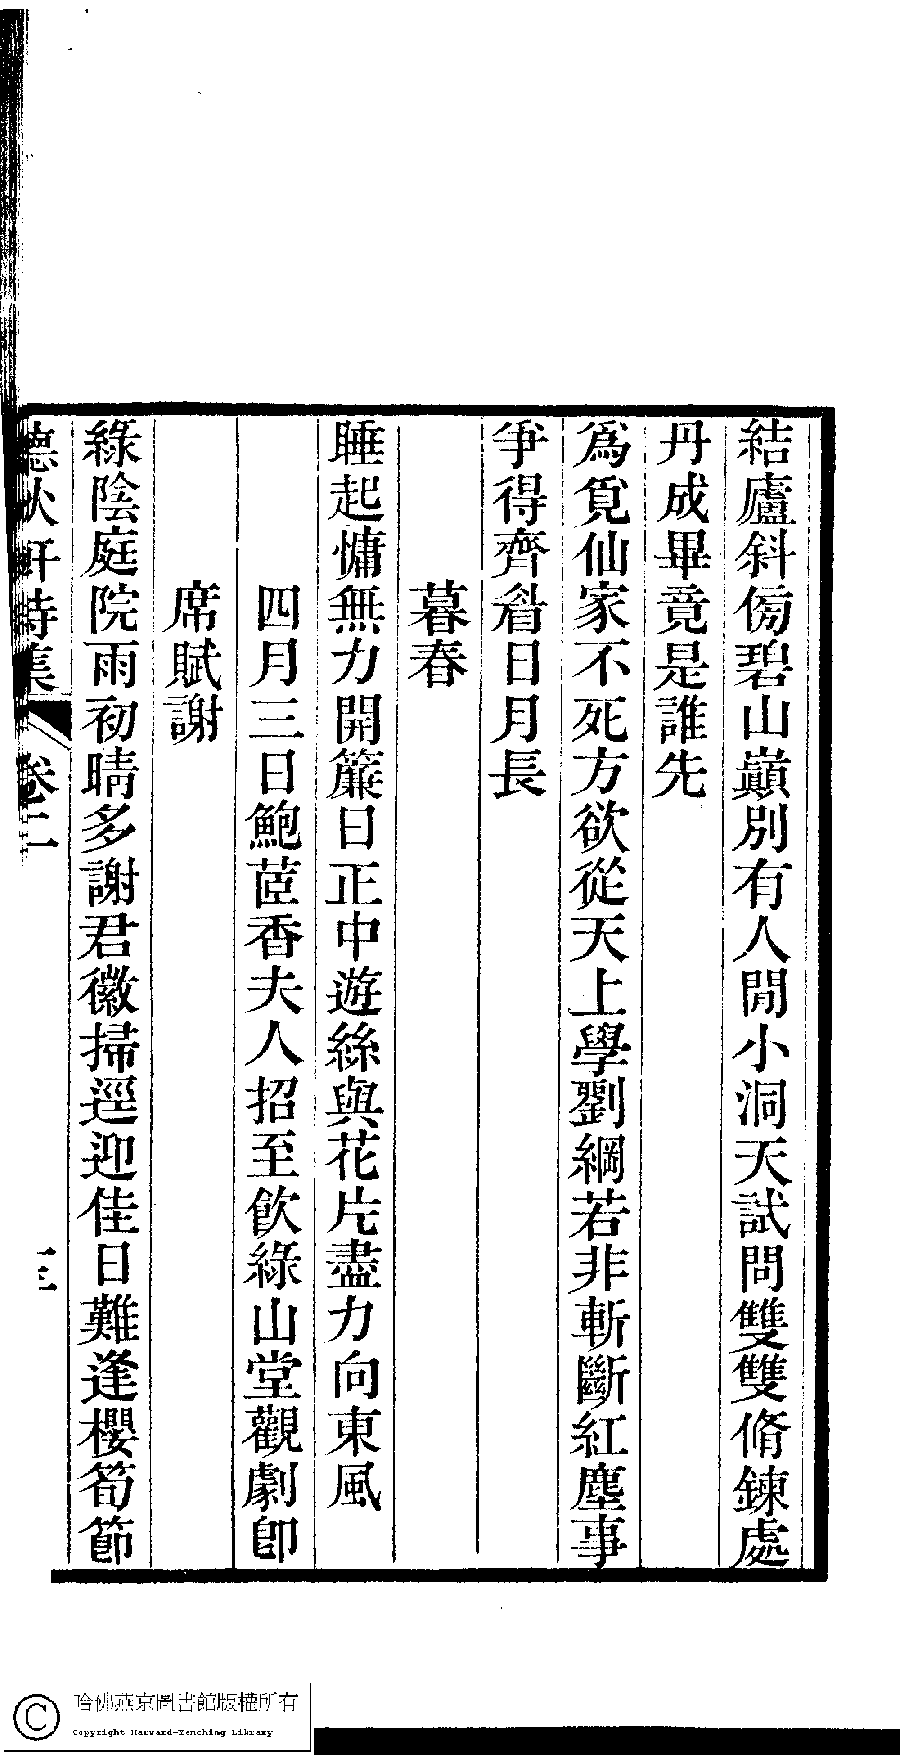 結廬斜傍碧山巔別有人閒小洞天試問雙雙脩鍊處
丹成畢竟是誰先
爲覓仙家不死方欲從天上學劉綱若非斬斷紅塵事
爭得齊眉日月長
暮春
睡起慵無力開簾日正中遊絲與花片盡力向東風
四月三日鮑茝香夫人招至飮綠山堂觀劇卽
席賦謝
綠陰庭院雨初晴多謝君徽掃逕迎佳日難逢櫻筍節
德秋軒詩集
卷二
三
哈佛燕京圖書館版權所有
Copyright Harvard-Yenching Library